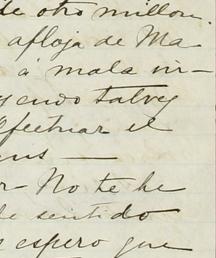 de otro millon.
afloja de Ma
á mala vir-
yendo talvez
efectuar el
—
No te he
de sentido
espero que